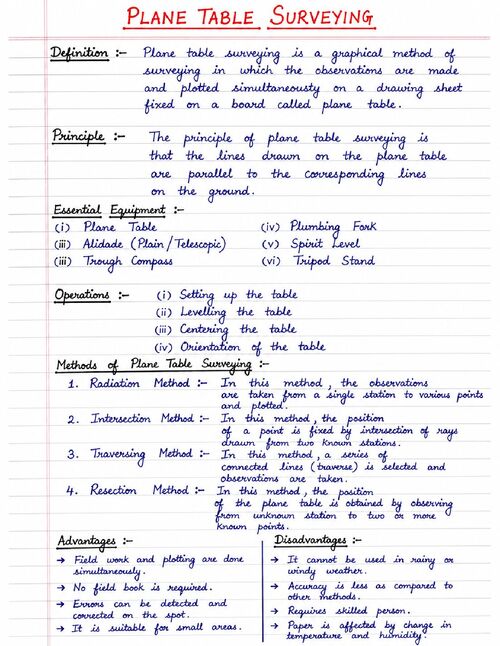 PLANE TABLE SURVEYING
Definition :- Plane table surveying is a graphical method of
surveying in which the observations are made
and plotted simultaneously on a drawing sheet
fixed on a board called plane table.
Principle :- The principle of plane table surveying is
that the lines drawn on the plane table
are parallel to the corresponding lines
on the ground.
Essential Equipment :-
(i) Plane Table (iv) Plumbing Fork
(iii) Alidade (Plain/Telescopic) (v) Spirit Level
(iii) Trough Compass (vi) Tripod Stand
Operations :- (i) Setting up the table
(ii) Levelling the table
(iii) Centering the table
(iv) Orientation of the table
Methods of Plane Table Surveying :-
1. Radiation Method :- In this method, the observations
are taken from a single station to various points
and plotted.
2. Intersection Method :- In this method, the position
of a point is fixed by intersection of rays
drawn from two known stations.
3. Traversing Method :- In this method, a series of
connected lines (traverse) is selected and
observations are taken.
4. Resection Method :- In this method, the position
of the plane table is obtained by observing
from unknown station to two or more
known points.
Advantages :-
→ Field work and plotting are done
simultaneously.
→ No field book is required.
→ Errors can be detected and
corrected on the spot.
→ It is suitable for small areas.
Disadvantages :-
→ It cannot be used in rainy or
windy weather.
→ Accuracy is less as compared to
other methods.
→ Requires skilled person.
→ Paper is affected by change in
temperature and humidity.